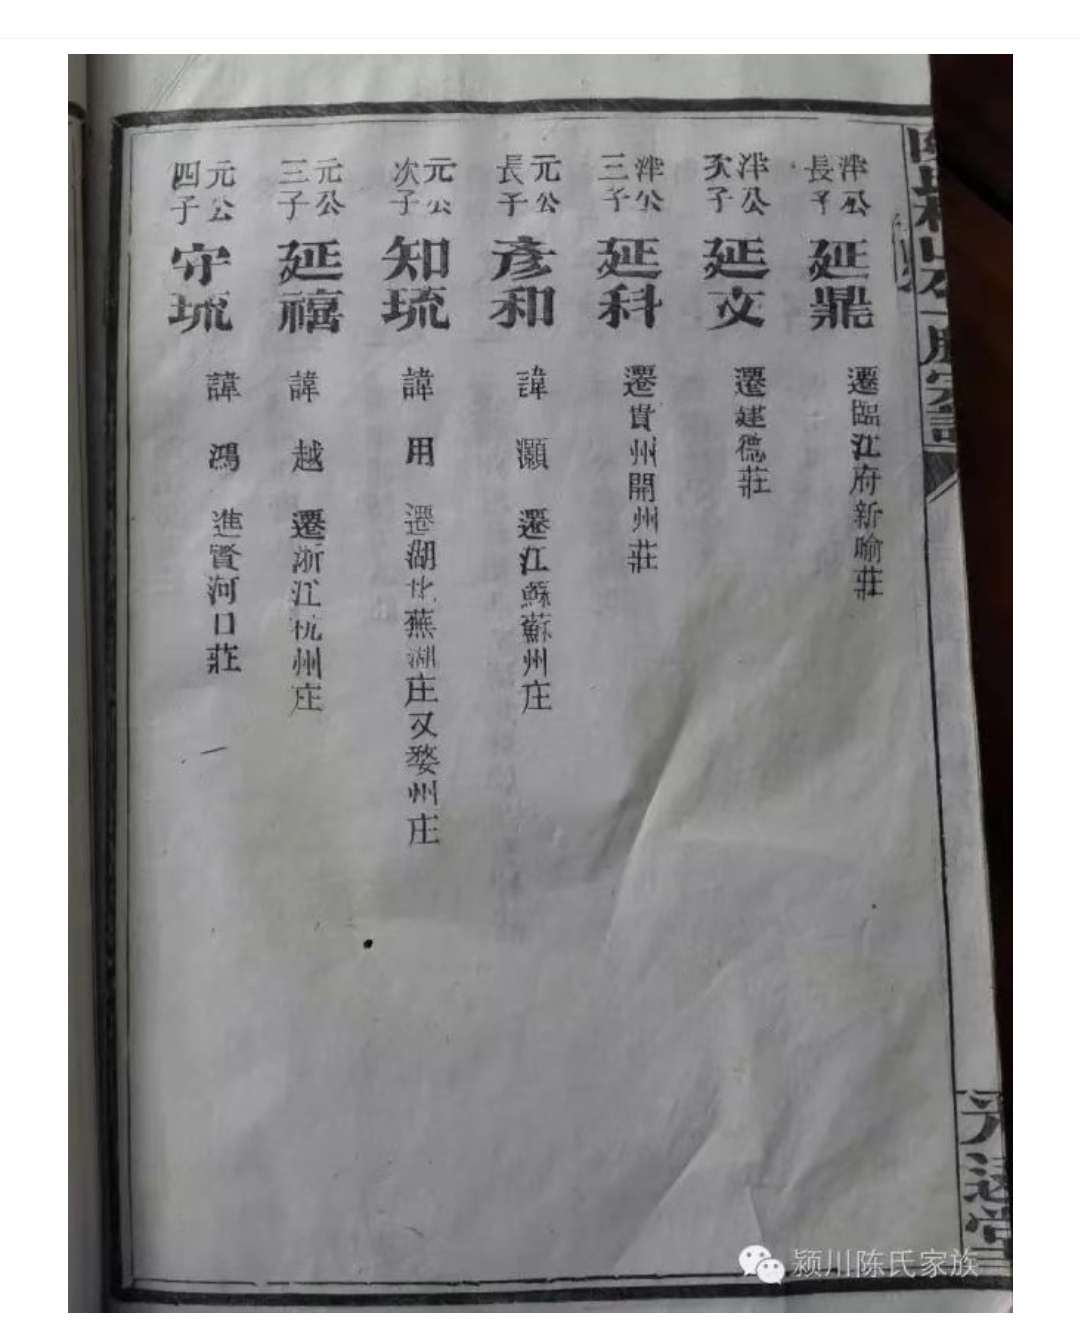 泮公長子 延鼎 遷臨江府新喻莊
泮公次子 延文 遷建德莊
泮公三子 延科 遷貴州開州莊
元公長子 彥和 諱灝 遷江蘇蘇州庄
元公次子 知琉 諱用 遷湖北蕪湖庄又婺州庄
元公三子 延禧 諱越 遷浙江杭州庄
元公四子 守琉 諱鴻 進賢河口莊
遠堂
颍川陈氏家族